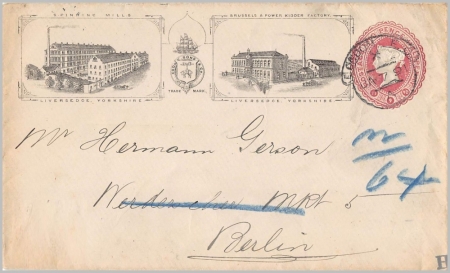 SPINNING MILLS
BRUSSELS & POWER WINDOW FACTORY
TRADE MARK
LIVERSEDGE, YORKSHIRE
LIVERSEDGE, YORKSHIRE
Mr Hermann Gerson
Werderscher Mkt 5
Berlin
64